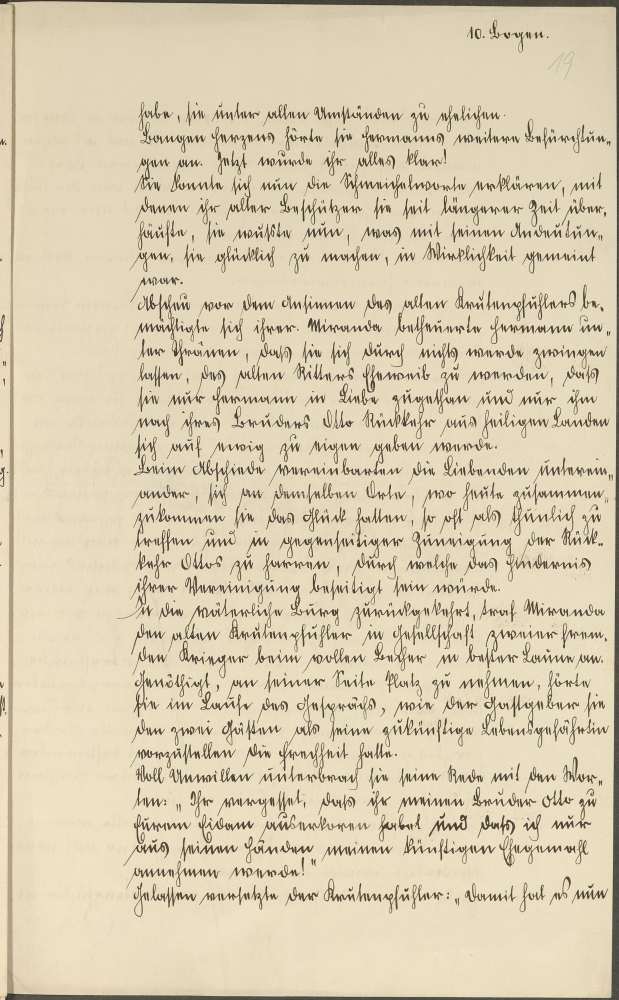 10. Bogen.
19
habe, sie unter allen Umständen zu ehelichen.
Bangen Herzens hörte sie Hermanns weitere Befürchtun„
gen an. Jetzt wurde ihr alles klar!
Sie konnte sich nun die Schmeichelworte erklären, mit
denen ihr alter Beschützer sie seit längerer Zeit über„
häufte, sie wußte nun, was mit seinen Andeutun„
gen, sie glücklich zu machen, in Wirklichkeit gemeint
war.
Abscheu vor dem Ansinnen des alten Krutenpfuhlers be„
mächtigte sich ihrer. Miranda betheuerte Hermann un„
ter Thränen, daß sie sich durch nichts werde zwingen
lassen, des alten Ritters Eheweib zu werden, daß
sie nur Hermann in Liebe zugethan und nur ihm
nach ihres Bruders Otto Rückkehr aus heiligen Landen
sich auf ewig zu eigen geben werde.
Beim Abschiede vereinbarten die Liebenden unterein„
ander, sich an demselben Orte, wo heute zusammen„
zukommen sie das Glück hatten, so oft als thunlich zu
treffen und in gegenseitiger Zuneigung der Rück„
kehr Ottos zu harren, durch welche das Hindernis
ihrer Vereinigung beseitigt sein würde.
In die väterliche Burg zurückgekehrt, traf Miranda
den alten Krutenpfuhler in Gesellschaft zweier frem„
den Krieger beim vollen Becher in bester Laune an.
Genöthigt, an seiner Seite Platz zu nehmen, hörte
sie im Laufe des Gesprächs, wie der Gastgeber sie
den zwei Gästen als seine zukünftige Lebensgefährtin
vorzustellen die Frechheit hatte.
Voll Unwillen unterbrach sie seine Rede mit den Wor„
ten: „Ihr vergesset, daß ihr meinen Bruder Otto zu
Eurem Eidam auserkoren habet und daß ich nur
aus seinen Händen meinen künftigen Ehegemahl
annehmen werde!"
Gelassen versetzte der Krutenpfuhler: „Damit hat es nun